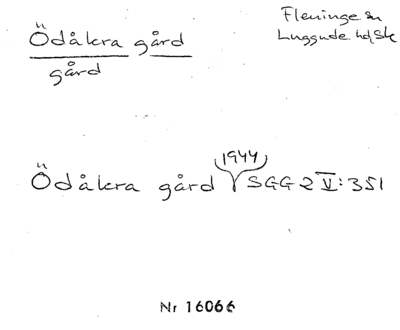 Ödåkra gård
gård
Fleninge sn
Luggude hd, Sk
1944
Ödåkra gård SGG 2 V:351
Nr 16066